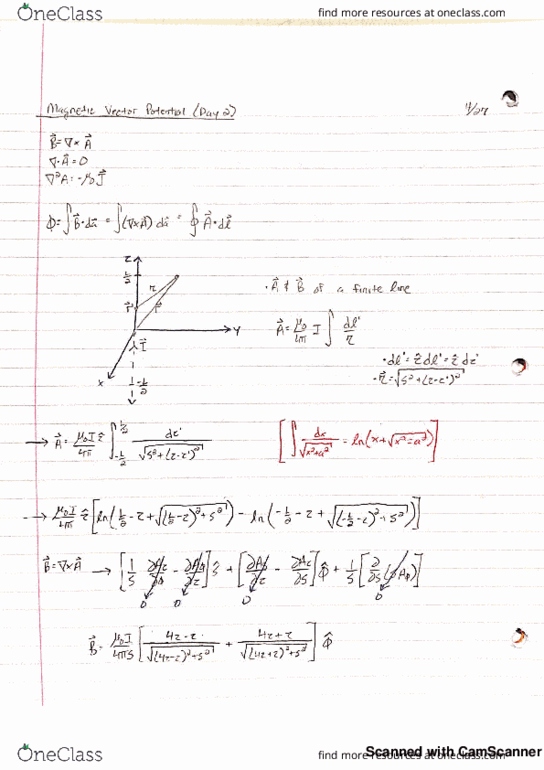 OneClass
find more resources at oneclass.com
Magnetic Vector Potential (Day 2)
4/27
B⃗=∇×A⃗
∇·A⃗=0
∇²A=-μ₀J⃗
Φ=∫B⃗·da⃗ = ∫(∇×A⃗)da⃗ = ∮A⃗·dl⃗
z
L/2
r
r'
r
y
I⃗
x
-L/2
· A⃗ & B⃗ of a finite line
A⃗ = μ₀/4π I ∫ dl'/r
· dl' = ẑdl' = ẑdz'
· r = √(s²+(z-z')²)
→ A⃗ = μ₀I/4π ẑ ∫_{-L/2}^{L/2} dz'/√(s²+(z-z')²)
[∫ dx/√(x²+a²) = ln(x+√(x²=a²))]
→ μ₀I/4π ẑ [ln(L/2-z+√((L/2-z)²+s²)) - ln(-L/2-z+√((-L/2-z)²+s²))]
B⃗=∇×A⃗ → [1/s ∂Az/∂φ - ∂Aφ/∂z]ŝ + [∂As/∂z - ∂Az/∂s]φ̂ + 1/s[∂/∂s(sAφ)]
0 0 0 0
B⃗ = μ₀I/4πs [4z-z/√((4z-z)²+s²) + 4z+z/√((4z+z)²+s²)] φ̂
OneClass
find more resources at oneclass.com
Scanned with CamScanner